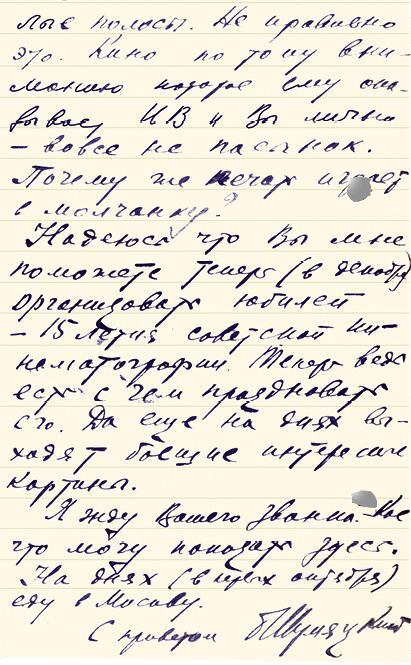 лые полосы. Не правильно
это. Кино по тому вни-
манию которое ему ока-
зываете ИВ и Вы лично
– вовсе не пасынок.
Почему же печать играет
в молчанку?
Надеюсь что Вы мне
поможете теперь (в декабре)
организовать юбилей
– 15 летия советской ки-
нематографии. Теперь ведь
есть с чем праздновать
его. Да еще на днях вы-
ходят боевые интересные
картины.
Я жду Вашего звонка. Кое
что могу показать здесь.
На днях (в октября)
еду в Москву.
С приветом БШумяцкий